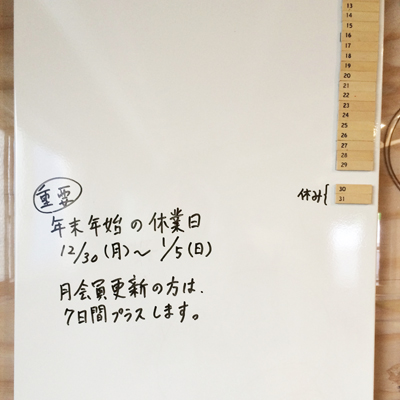 13
14
15
16
17
18
19
20
21
22
23
24
25
26
27
28
29
休み{ 30
31
重要
年末年始の休業日
12/30(月)〜1/5(日)
月会員更新の方は、
7日間プラスします。